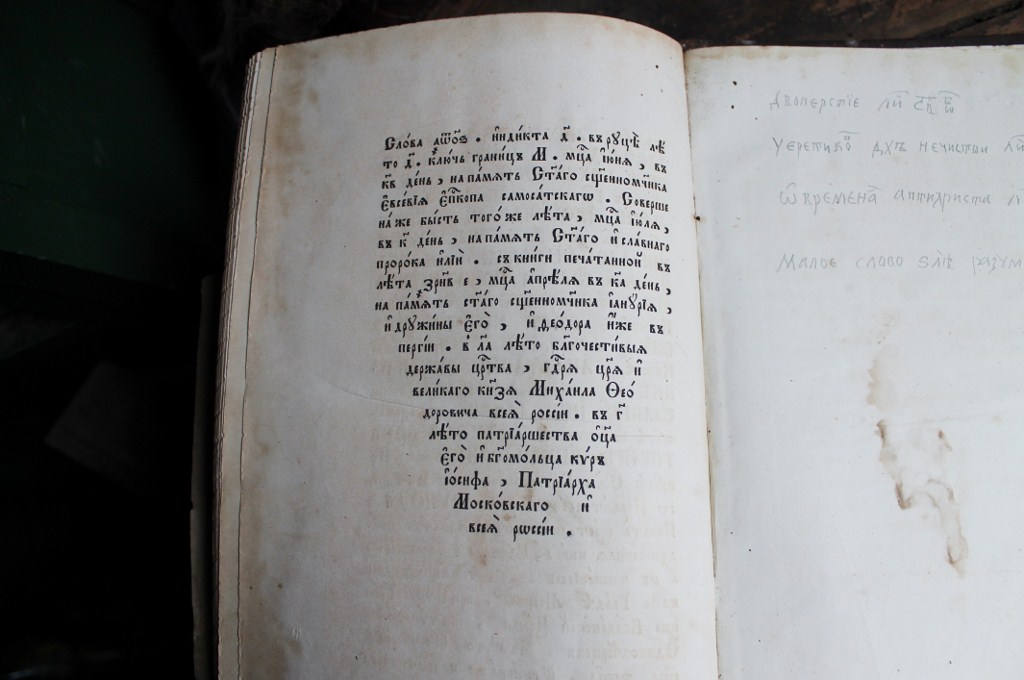 Сло́ва аѱо҃з . и҆нди́кта д҃ . въ руцѣ̀ лѣ́
то д҃ . клю́чь грани́цъ М . мц҃а і҆ю́нѧ , въ
к҃в де́нь , на па́мѧть Ст҃а́го сщ҃е́нномч҃нка
є҆ѵсе́вїѧ є҆пⷭ҇копа самоса́тскагѡ . Соверше
на́ же бы́сть того́ же лѣ́та , мц҃а і҆ю́лѧ ,
въ к҃ де́нь , на па́мѧть Ст҃а́го и҆ сла́внаго
проро́ка и҆лїѝ . съ кни́ги печа́танной въ
лѣ́та ҂зрн҃в е , мц҃а а҆прѣ́лѧ въ к҃а де́нь ,
на па́мѧть ст҃а́го сщ҃е́нномч҃нка і҆аннꙋ́рїѧ ,
и҆ дрꙋжи́ны є҆гѡ̀ , и҆ ѳео́дора и҆́же въ
перги́и . в л҃а лѣ́то бл҃гочести́выѧ
держа́вы црⷭ҇тва , гдⷭ҇рѧ цр҃ѧ̀ и҆
вели́каго кн҃зѧ Михаи́ла Ѳео́
доровича всеѧ̀ россі́и . въ г҃
лѣ́то патрїа́ршества ѻ҆ц҃а̀
є҆гѡ̀ и҆ бг҃омо́льца кѵ́ръ
і҆о́сифа , Патрїа́рха
Моско́вскаго и҆
всеѧ̀ рѡссі́и .
двоперстїе
нечистыи
ѿ времена антихриста
малое слово ѕлѣ разум